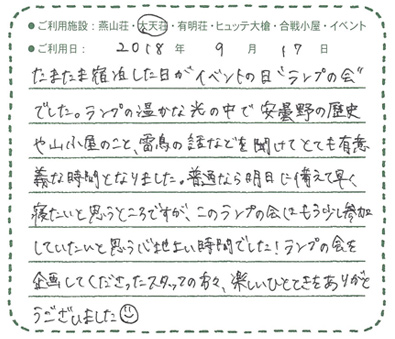 ●ご利用施設：燕山荘・大天荘・有明荘・ヒュッテ大槍・合戦小屋・イベント
●ご利用日： 2018 年 9 月 17 日
たまたま宿泊した日がイベントの日“ランプの会”
でした。ランプの温かな光の中で安曇野の歴史
や山小屋のこと、雷鳥の話などを聞けてとても有意
義な時間となりました。普通なら明日に備えて早く
寝たいと思うところですが、このランプの会はもう少し参加
していたいと思う心地よい時間でした！ランプの会を
企画してくださったスタッフの方々、楽しいひとときをありがと
うございました